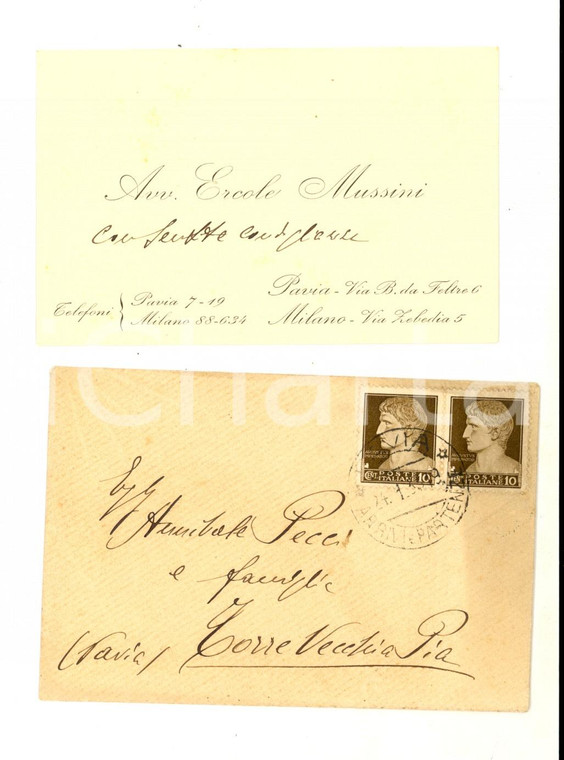 Avv. Ercole Mussini
con sentite condoglianze
Telefoni { Pavia 7-19
Milano 88-634
Pavia - Via B. da Feltre 6
Milano - Via Zebedia 5
POSTE ITALIANE
CENT. 10
POSTE ITALIANE
10
Annibale Pecci
e famiglia
(Pavia) Torre Vecchia Pia